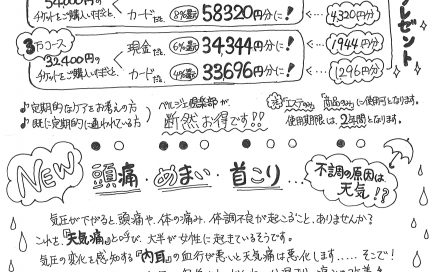 54000円の
チケットをご購入いただくと、
カードだと、8%お得 58320円分に! 4320円分
プレゼント
3万コース
32400円の
チケットをご購入いただくと、
現金だと、6%お得 34344円分に! 1944円分
カードだと、4%お得 33696円分に! 1296円分
♪定期的なケアをお考えの方
♪既に定期的に通われている方
断然お得です!!
使用期限は、2年間となります。
NEW
頭痛・めまい・首こり…
不調の原因は天気!?
気圧が下がると頭痛や、体の痛み、体調不良が起こること、ありませんか?
これを「天気痛」と呼び、大半が女性に起きているそうです。
気圧の変化を感知する「内耳」の血行が悪いと天気痛は悪化します……そこで!